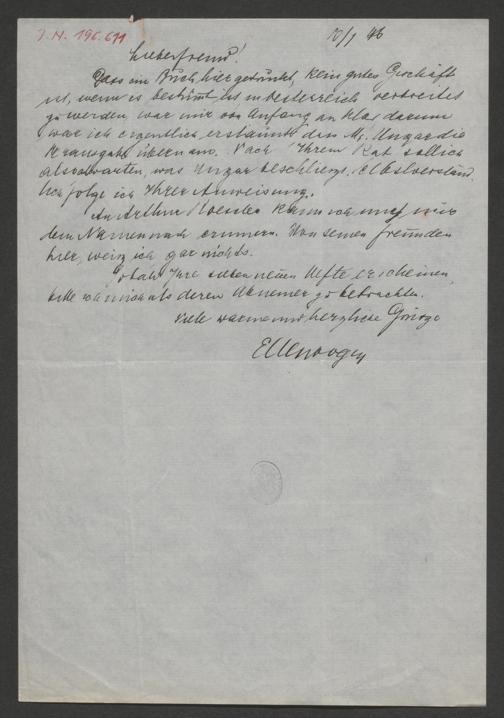 J.N. 196.611
/1 46
Lieber Freund!
Dass ein Buch, hier gedruckt, kein gutes Geschäft
ist, wenn es bestimmt ist, in Oesterreich verbreitet
zu werden, war mir von Anfang an klar, darum
war ich eigentlich erstaunt, dass M. Ungar die
Herausgabe übernahm. Nach Ihrem Rat soll ich
also warten, was Ungar beschliesst. Selbstverständ-
lich folge ich Ihrer Anweisung.
An Arthur kann ich mich nur
dem Namen nach erinnern. Von seinen Freunden
hier, weiss ich gar nichts.
Sobald Ihre neuen Hefte erscheinen,
bitte ich mich als deren Abnehmer zu betrachten.
Viele warme und herzliche Grüsse
Ellenbogen